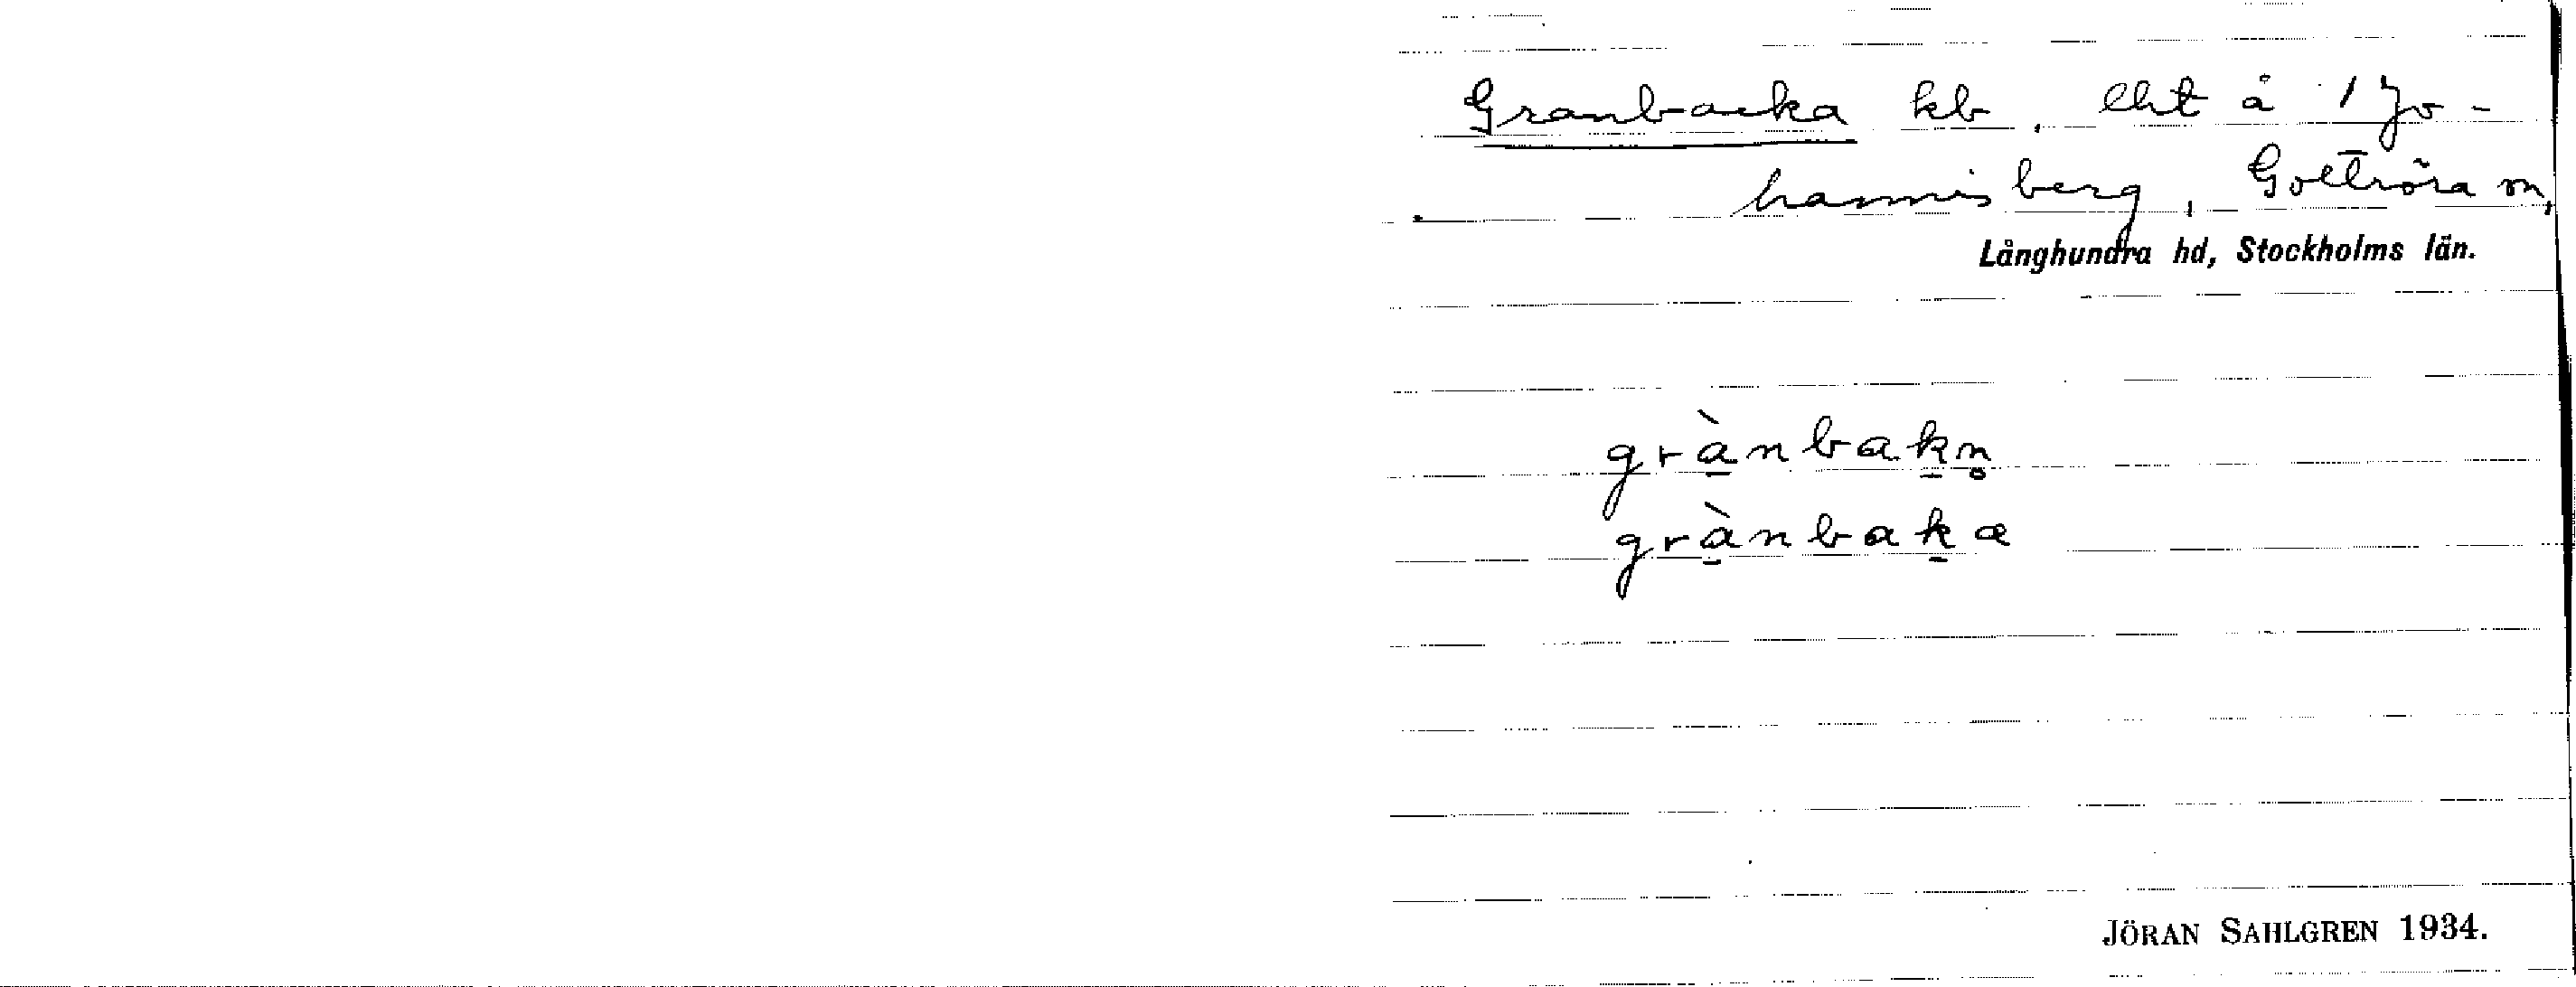 Granbacka kb, lht å 1 Jo-
hannisberg, Gottröra sn,
Långhundra hd, Stockholms län.
grà̱nbaḵn̥
grà̱nbaḵa
JÖRAN SAHLGREN 1934.